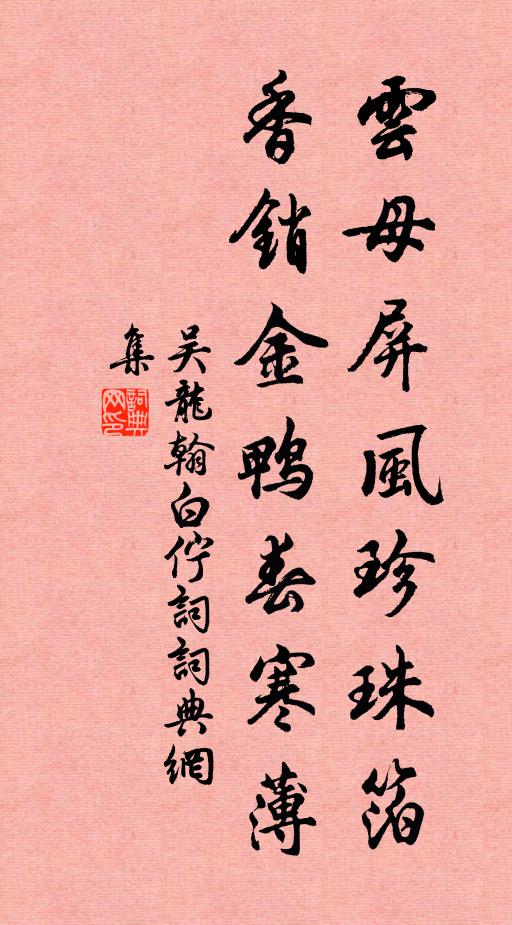 雲母屏風珍珠箔
香銷金鴨春寒薄
吴龍翰白佇詞詞典網
集
詞典網印